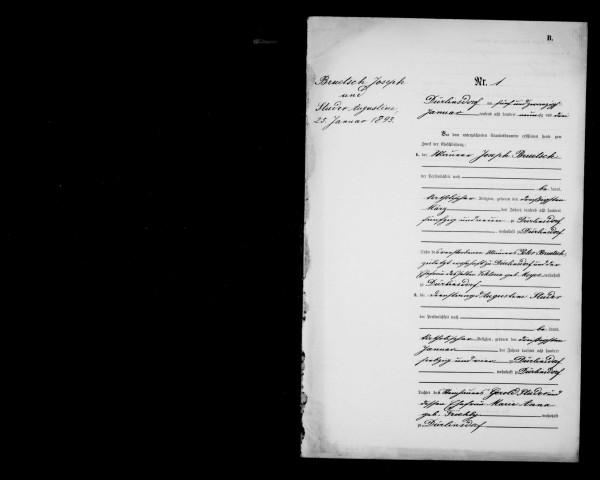 B.
Bruetsch Joseph
und
Studer Augustine,
25. Januar 1893.
Nr. 1
Dürlinsdorf am fünf und zwanzigsten
Januar tausend acht hundert neunzig und drei
Vor dem unterzeichneten Standesbeamten erschienen heute zum
Zweck der Eheschließung:
1. der Maurer Joseph Bruetsch
der Persönlichkeit nach
be kannt,
katholischer Religion, geboren den dreißigsten
März des Jahres tausend acht hundert
fünfzig und neun zu Dürlinsdorf
, wohnhaft zu Dürlinsdorf
Sohn des verstorbenen Maurers Bruetsch,
zuletzt wohnhaft zu Dürlinsdorf und der
Ehefrau desselben geb. Meyer, wohnhaft
zu Dürlinsdorf
2. die Augustine Studer
der Persönlichkeit nach
be kannt,
katholischer Religion, geboren den dreißigsten
Januar des Jahres tausend acht hundert
sechzig und vier zu Dürlinsdorf
, wohnhaft zu Dürlinsdorf
Tochter des Gerold Studer und
dessen Ehefrau Maria Anna
geb. wohnhaft
zu Dürlinsdorf